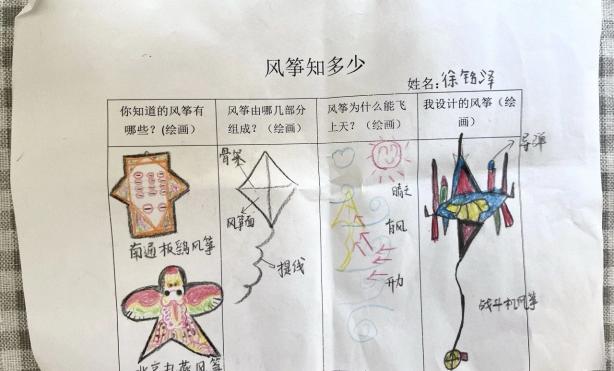 风筝知多少
姓名:徐铭泽
你知道的风筝有
哪些?(绘画)
风筝由哪几部分
组成?(绘画)
风筝为什么能飞
上天?(绘画)
我设计的风筝(绘
画)
南通板鹞风筝
骨架
风筝面
提线
晴天
有风
升力
导弹
战斗机风筝